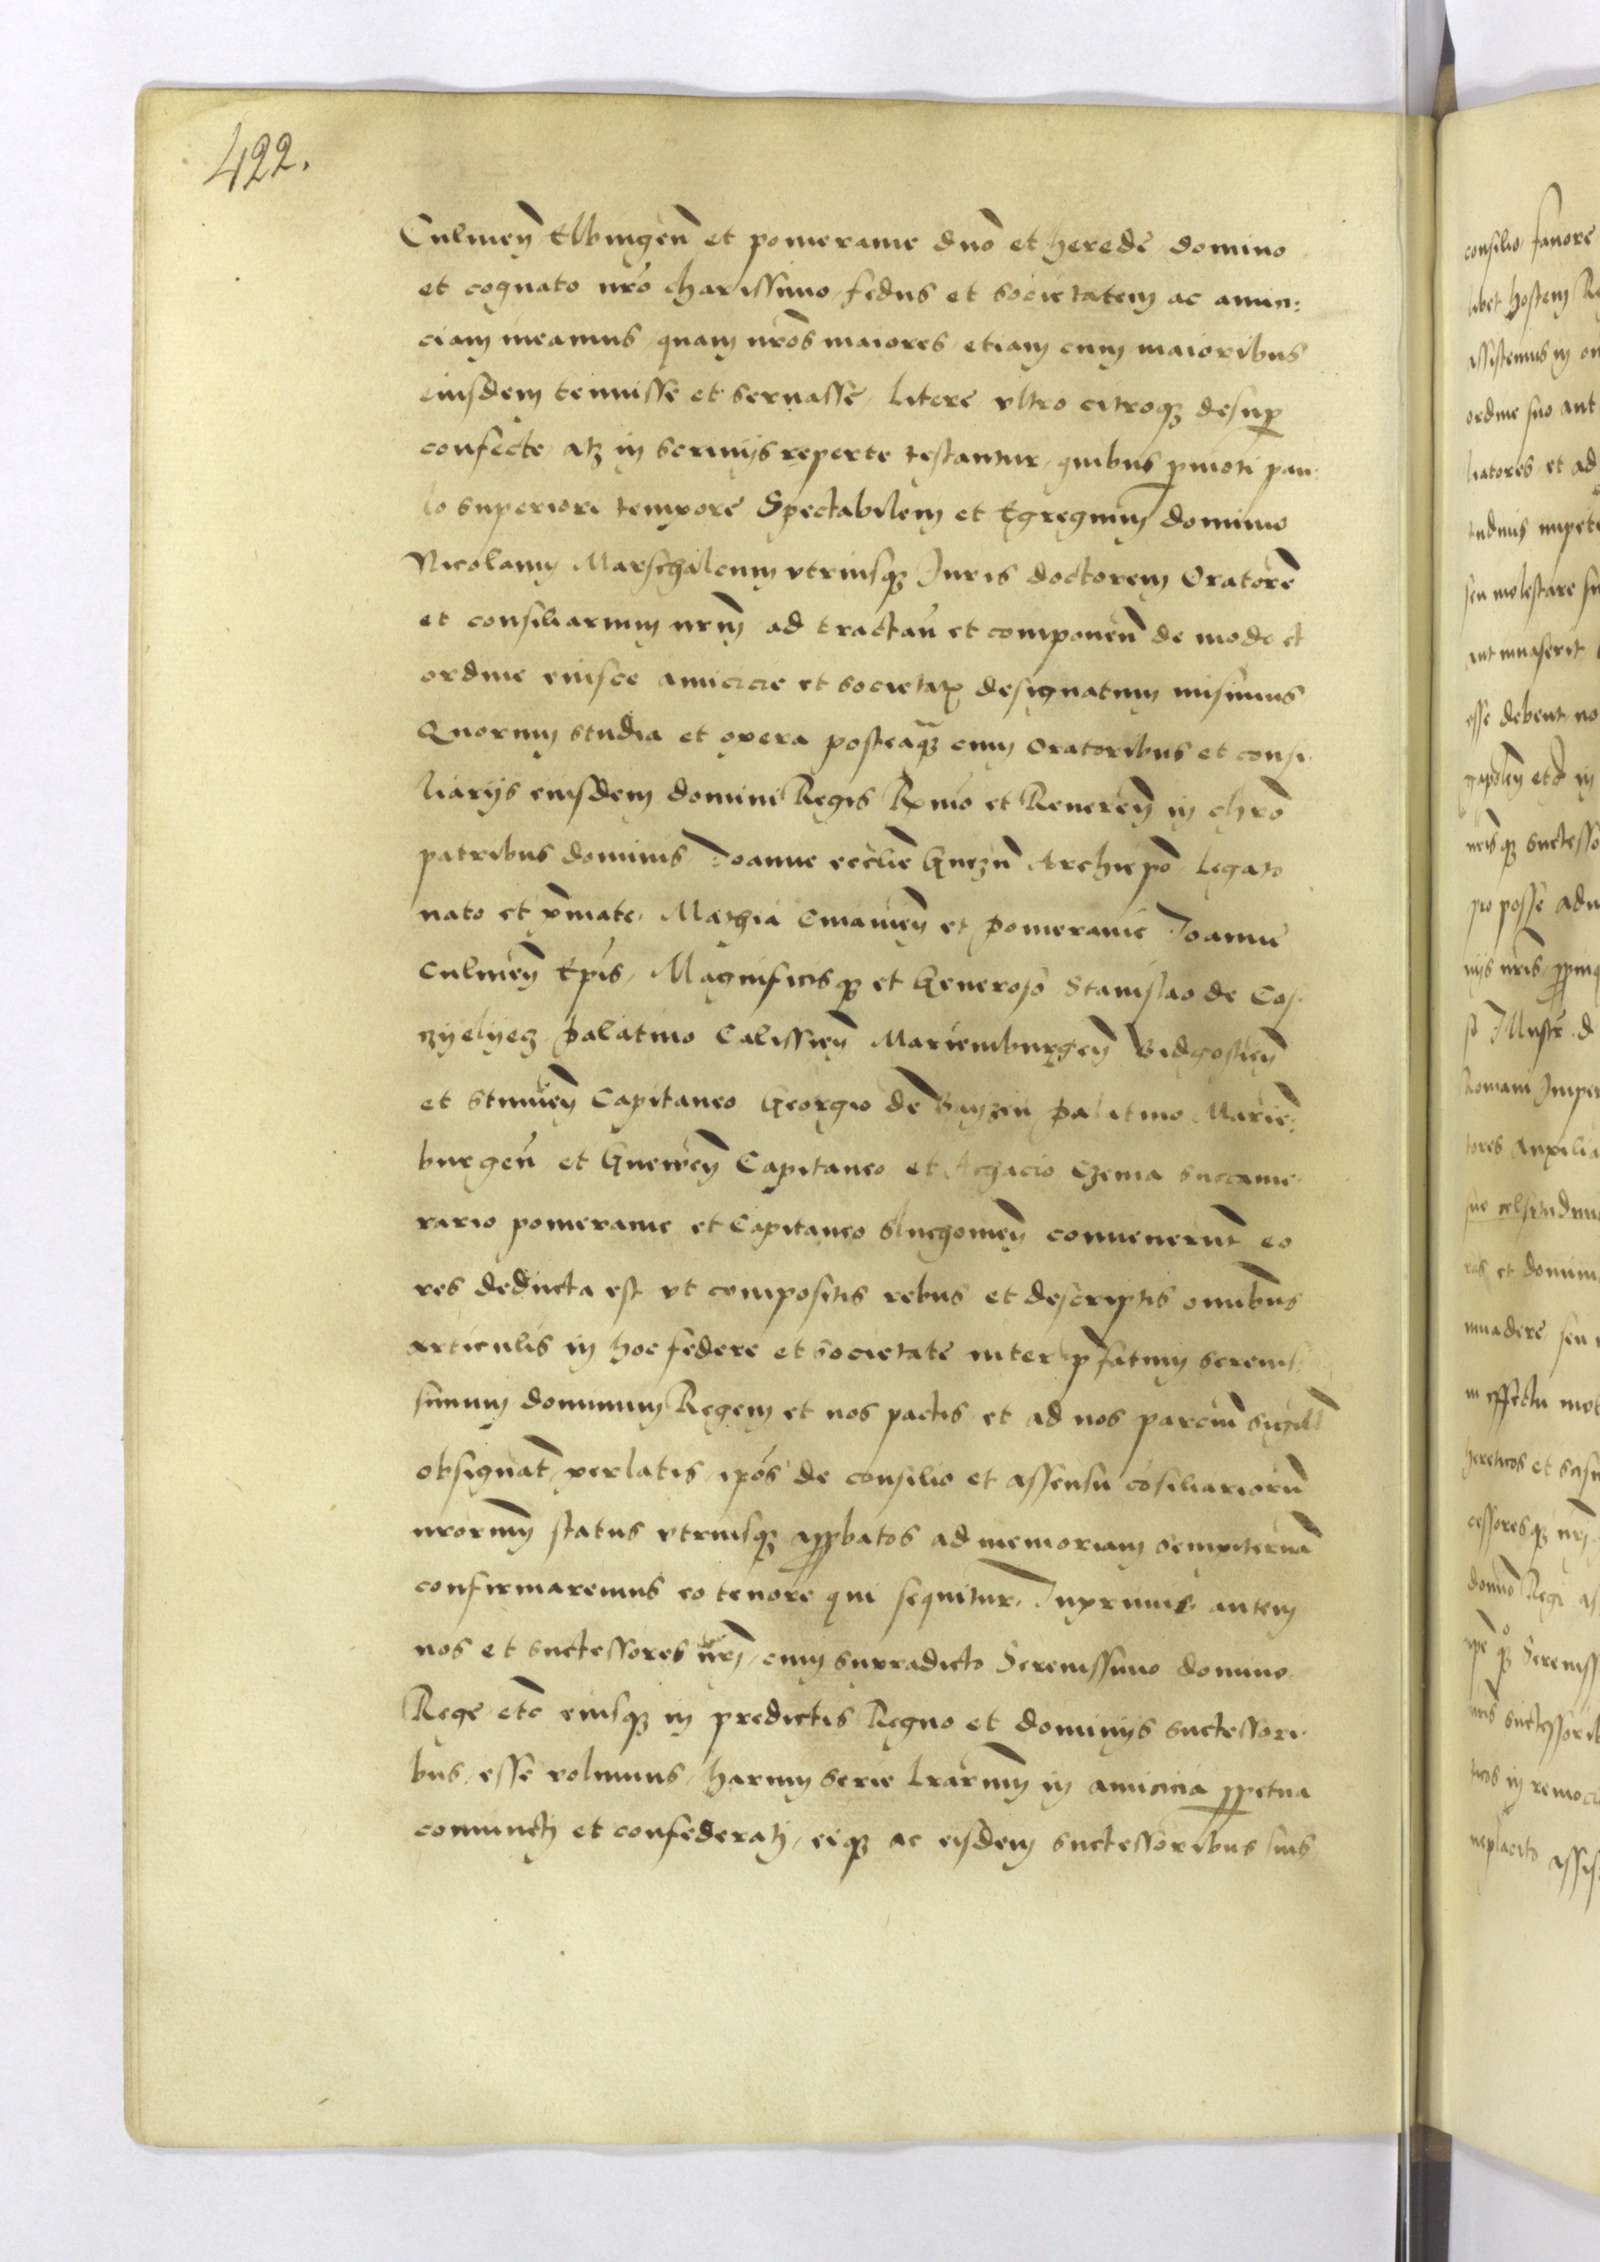 422.
Culmeñ Elbingeñ et pomeranie dño et herede domino
et cognato nrõ charissimo / fedus et societatem ac amici:
ciam ineamus / quam nrõs maiores / etiam cum maioribus
eiusdem tenuisse et seruasse / litere vltro citroqȝ desup
confecte / atȝ in scrinijs reperte testantur / quibus pmoti pau:
lo superiori tempore Spectabilem et Egregium domino
Nicolaum Marschalcum vtriusqȝ Juris doctorem Oratorẽ
et consiliarium nrm̃ ad tractañ et componeñ de modo et
ordine eiusce amicicie et societatꝭ designatum misimus
Quorum studia et opera posteaqȝ cum oratoribus et consi:
liarijs eiusdem domini Regis Rmõ et Reuereñ in chrõ
patribus dominis Joanne ecclie Gnezñ Archiepõ / Legato
nato et pmate / Mathia Cuiauieñ et Pomeranie Joanne
Culmeñ Epis̃ / Magnificisqȝ et Generoso Stanislao de Cos:
zyelyecz / Palatino Calissieñ Mariemburgeñ Bidgostieñ
et Stumeñ Capitaneo Georgio de Bayzen Palatino Marie:
burgeñ et Gneweñ Capitaneo et Achacio Czema succame:
rario pomeranie et Capitaneo Sluchouieñ conuenerunt eo
res deducta est vt compositis rebus et descriptis omnibus
articulis in hoc federe et societate inter pfatum serenis:
simum dominum Regem et nos pactis et ad nos parciũ sigill
obsignat̃ / perlatis / ipõs de consilio et assensu cõsiliariorũ
nrorum̃ status vtriusqȝ appbatos ad memoriam sempiternã
confirmaremus eo tenore qui sequitur. Inprimis autem
nos et successores nrj̃ / cum supradicto Serenissimo domino
Rege etc̃ eiusqȝ in predictis Regno et dominijs successori:
bus / esse volumus / harum serie lrarum̃ in amicicia ppetua
coniuncti et confederati / eiqȝ ac eisdem successoribus suis
consilio fauore
libet hostem Re
assistemus in om
ordine suo aut
liatores et ad
seu molestare
aut inuaserit
esse debent no
pro posse adu
Romani Imper
tores Auxilia
et domin
inuadere seu
in effectu
hereticos et scis
cessoresqȝ nrj̃
domino Regi
Sereniss
nris̃ successorib